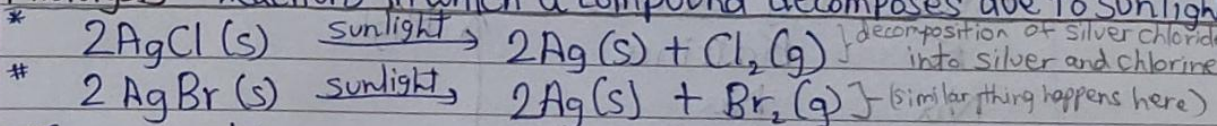 reactions in which a compound decomposes due to sunligh
* 2AgCl (s) sunlight → 2Ag (s) + Cl₂ (g) } decomposition of silver chloride
into silver and chlorine
# 2 AgBr (s) sunlight → 2Ag (s) + Br₂ (g) } (similar thing happens here)